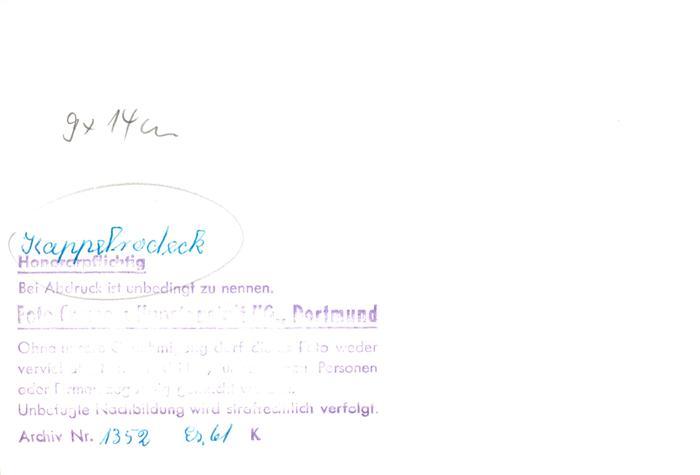 9x 14 cm
Kappelrodeck
Honorarpflichtig
Bei Abdruck ist unbedingt zu nennen.
Foto Dortmund
Ohne unsere Genehmigung darf dieses Foto weder
Personen
oder Firmen
Unbefugte Nachbildung wird strafrechtlich verfolgt.
Archiv Nr. 1352 61 K